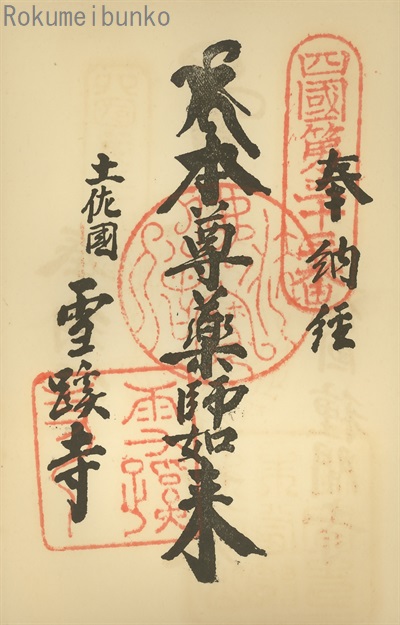 Rokumeibunko
四國第三十三番
奉納經
本尊薬師如来
土佐國
雪蹊寺
雪蹊